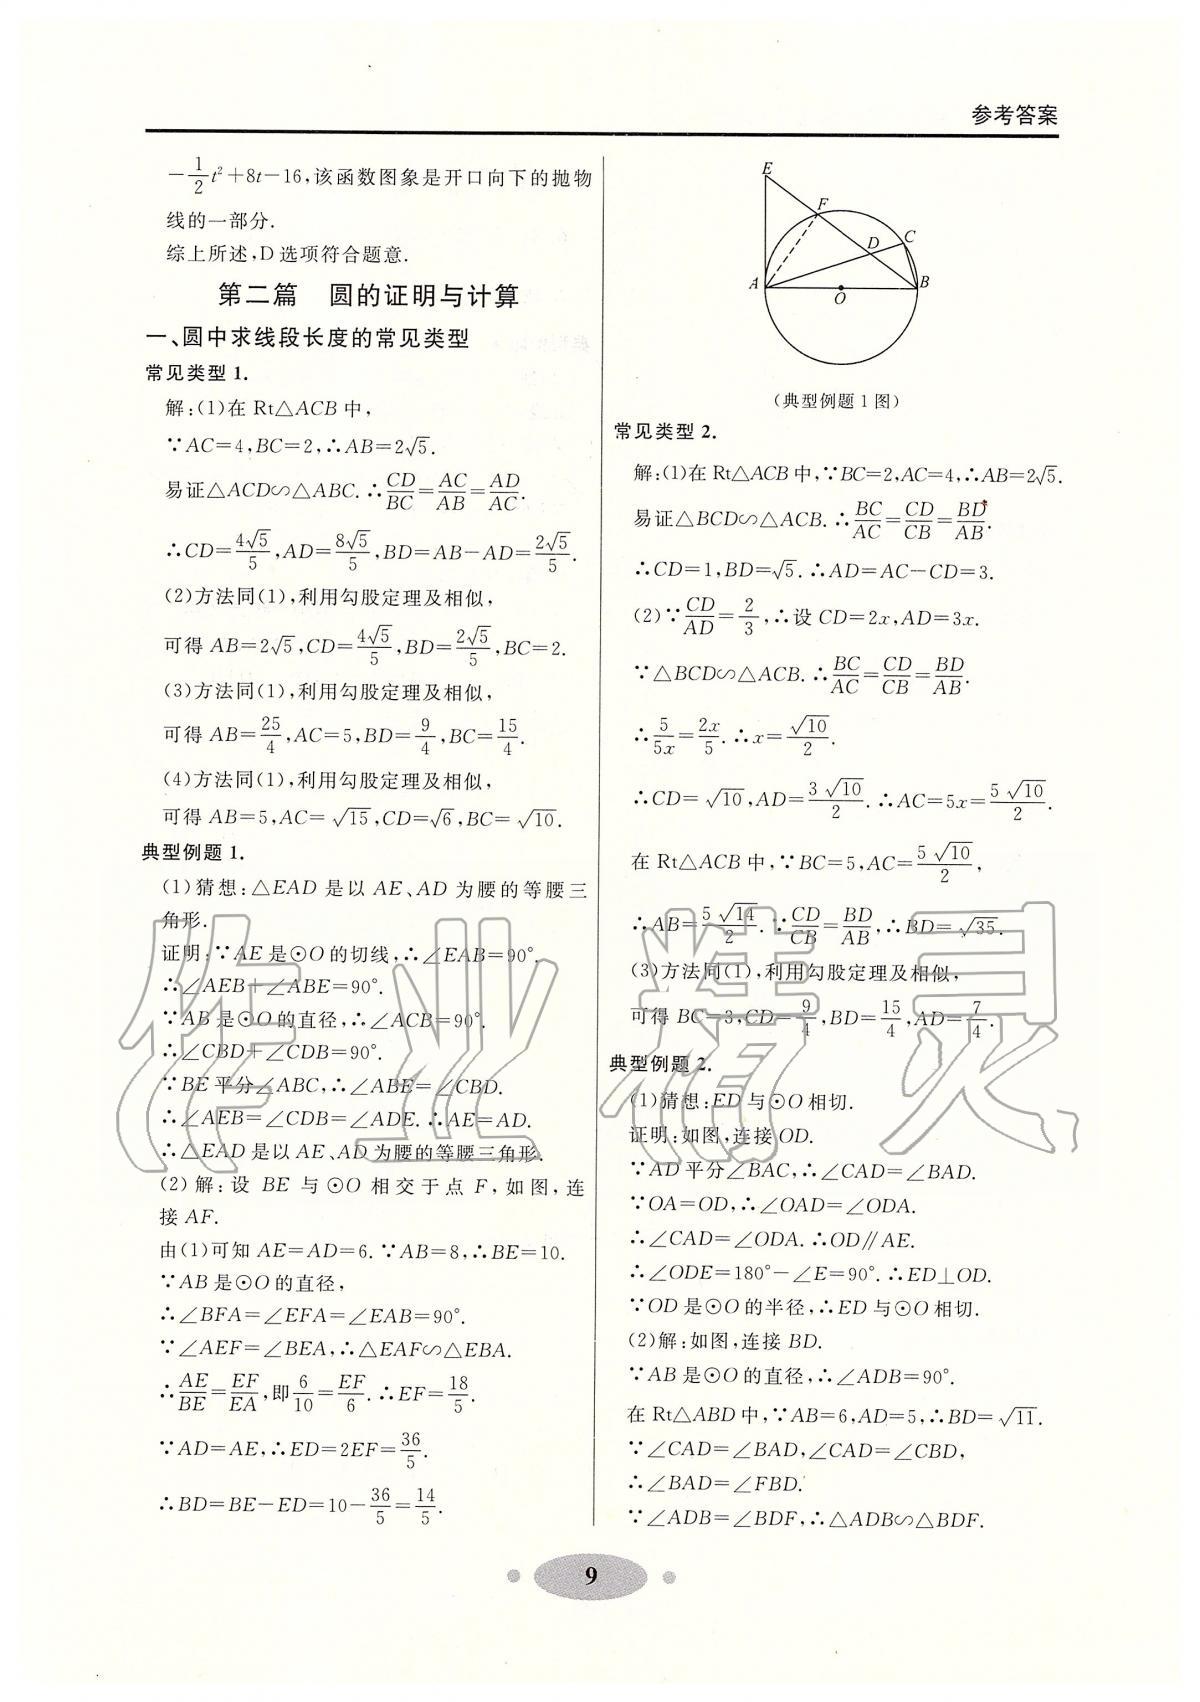 参考答案
-1/2 t²+8t-16,该函数图象是开口向下的抛物
线的一部分.
综上所述,D选项符合题意.
第二篇 圆的证明与计算
一、圆中求线段长度的常见类型
常见类型1.
解:(1)在Rt△ACB中,
∵AC=4,BC=2,∴AB=2√5.
易证△ACD∽△ABC.∴CD/BC=AC/AB=AD/AC.
∴CD=4√5/5,AD=8√5/5,BD=AB-AD=2√5/5.
(2)方法同(1),利用勾股定理及相似,
可得AB=2√5,CD=4√5/5,BD=2√5/5,BC=2.
(3)方法同(1),利用勾股定理及相似,
可得AB=25/4,AC=5,BD=9/4,BC=15/4.
(4)方法同(1),利用勾股定理及相似,
可得AB=5,AC=√15,CD=√6,BC=√10.
典型例题1.
(1)猜想:△EAD是以AE、AD为腰的等腰三
角形.
证明:∵AE是⊙O的切线,∴∠EAB=90°.
∴∠AEB+∠ABE=90°.
∵AB是⊙O的直径,∴∠ACB=90°.
∴∠CBD+∠CDB=90°.
∵BE平分∠ABC,∴∠ABE=∠CBD.
∴∠AEB=∠CDB=∠ADE.∴AE=AD.
∴△EAD是以AE、AD为腰的等腰三角形.
(2)解:设BE与⊙O相交于点F,如图,连
接AF.
由(1)可知AE=AD=6.∵AB=8,∴BE=10.
∵AB是⊙O的直径,
∴∠BFA=∠EFA=∠EAB=90°.
∵∠AEF=∠BEA,∴△EAF∽△EBA.
∴AE/BE=EF/EA,即6/10=EF/6.∴EF=18/5.
∵AD=AE,∴ED=2EF=36/5.
∴BD=BE-ED=10-36/5=14/5.
E
F
C
D
A
O
B
(典型例题1图)
常见类型2.
解:(1)在Rt△ACB中,∵BC=2,AC=4,∴AB=2√5.
易证△BCD∽△ACB.∴BC/AC=CD/CB=BD/AB.
∴CD=1,BD=√5.∴AD=AC-CD=3.
(2)∵CD/AD=2/3,∴设CD=2x,AD=3x.
∵△BCD∽△ACB.∴BC/AC=CD/CB=BD/AB.
∴5/5x=2x/5.∴x=√10/2.
∴CD=√10,AD=3√10/2.∴AC=5x=5√10/2.
在Rt△ACB中,∵BC=5,AC=5√10/2,
∴AB=5√14/2.∵CD/CB=BD/AB,∴BD=√35.
(3)方法同(1),利用勾股定理及相似,
可得BC=3,CD=9/4,BD=15/4,AD=7/4.
典型例题2.
(1)猜想:ED与⊙O相切.
证明:如图,连接OD.
∵AD平分∠BAC,∴∠CAD=∠BAD.
∵OA=OD,∴∠OAD=∠ODA.
∴∠CAD=∠ODA.∴OD∥AE.
∴∠ODE=180°-∠E=90°.∴ED⊥OD.
∵OD是⊙O的半径,∴ED与⊙O相切.
(2)解:如图,连接BD.
∵AB是⊙O的直径,∴∠ADB=90°.
在Rt△ABD中,∵AB=6,AD=5,∴BD=√11.
∵∠CAD=∠BAD,∠CAD=∠CBD,
∴∠BAD=∠FBD.
∵∠ADB=∠BDF,∴△ADB∽△BDF.
9
作业精灵